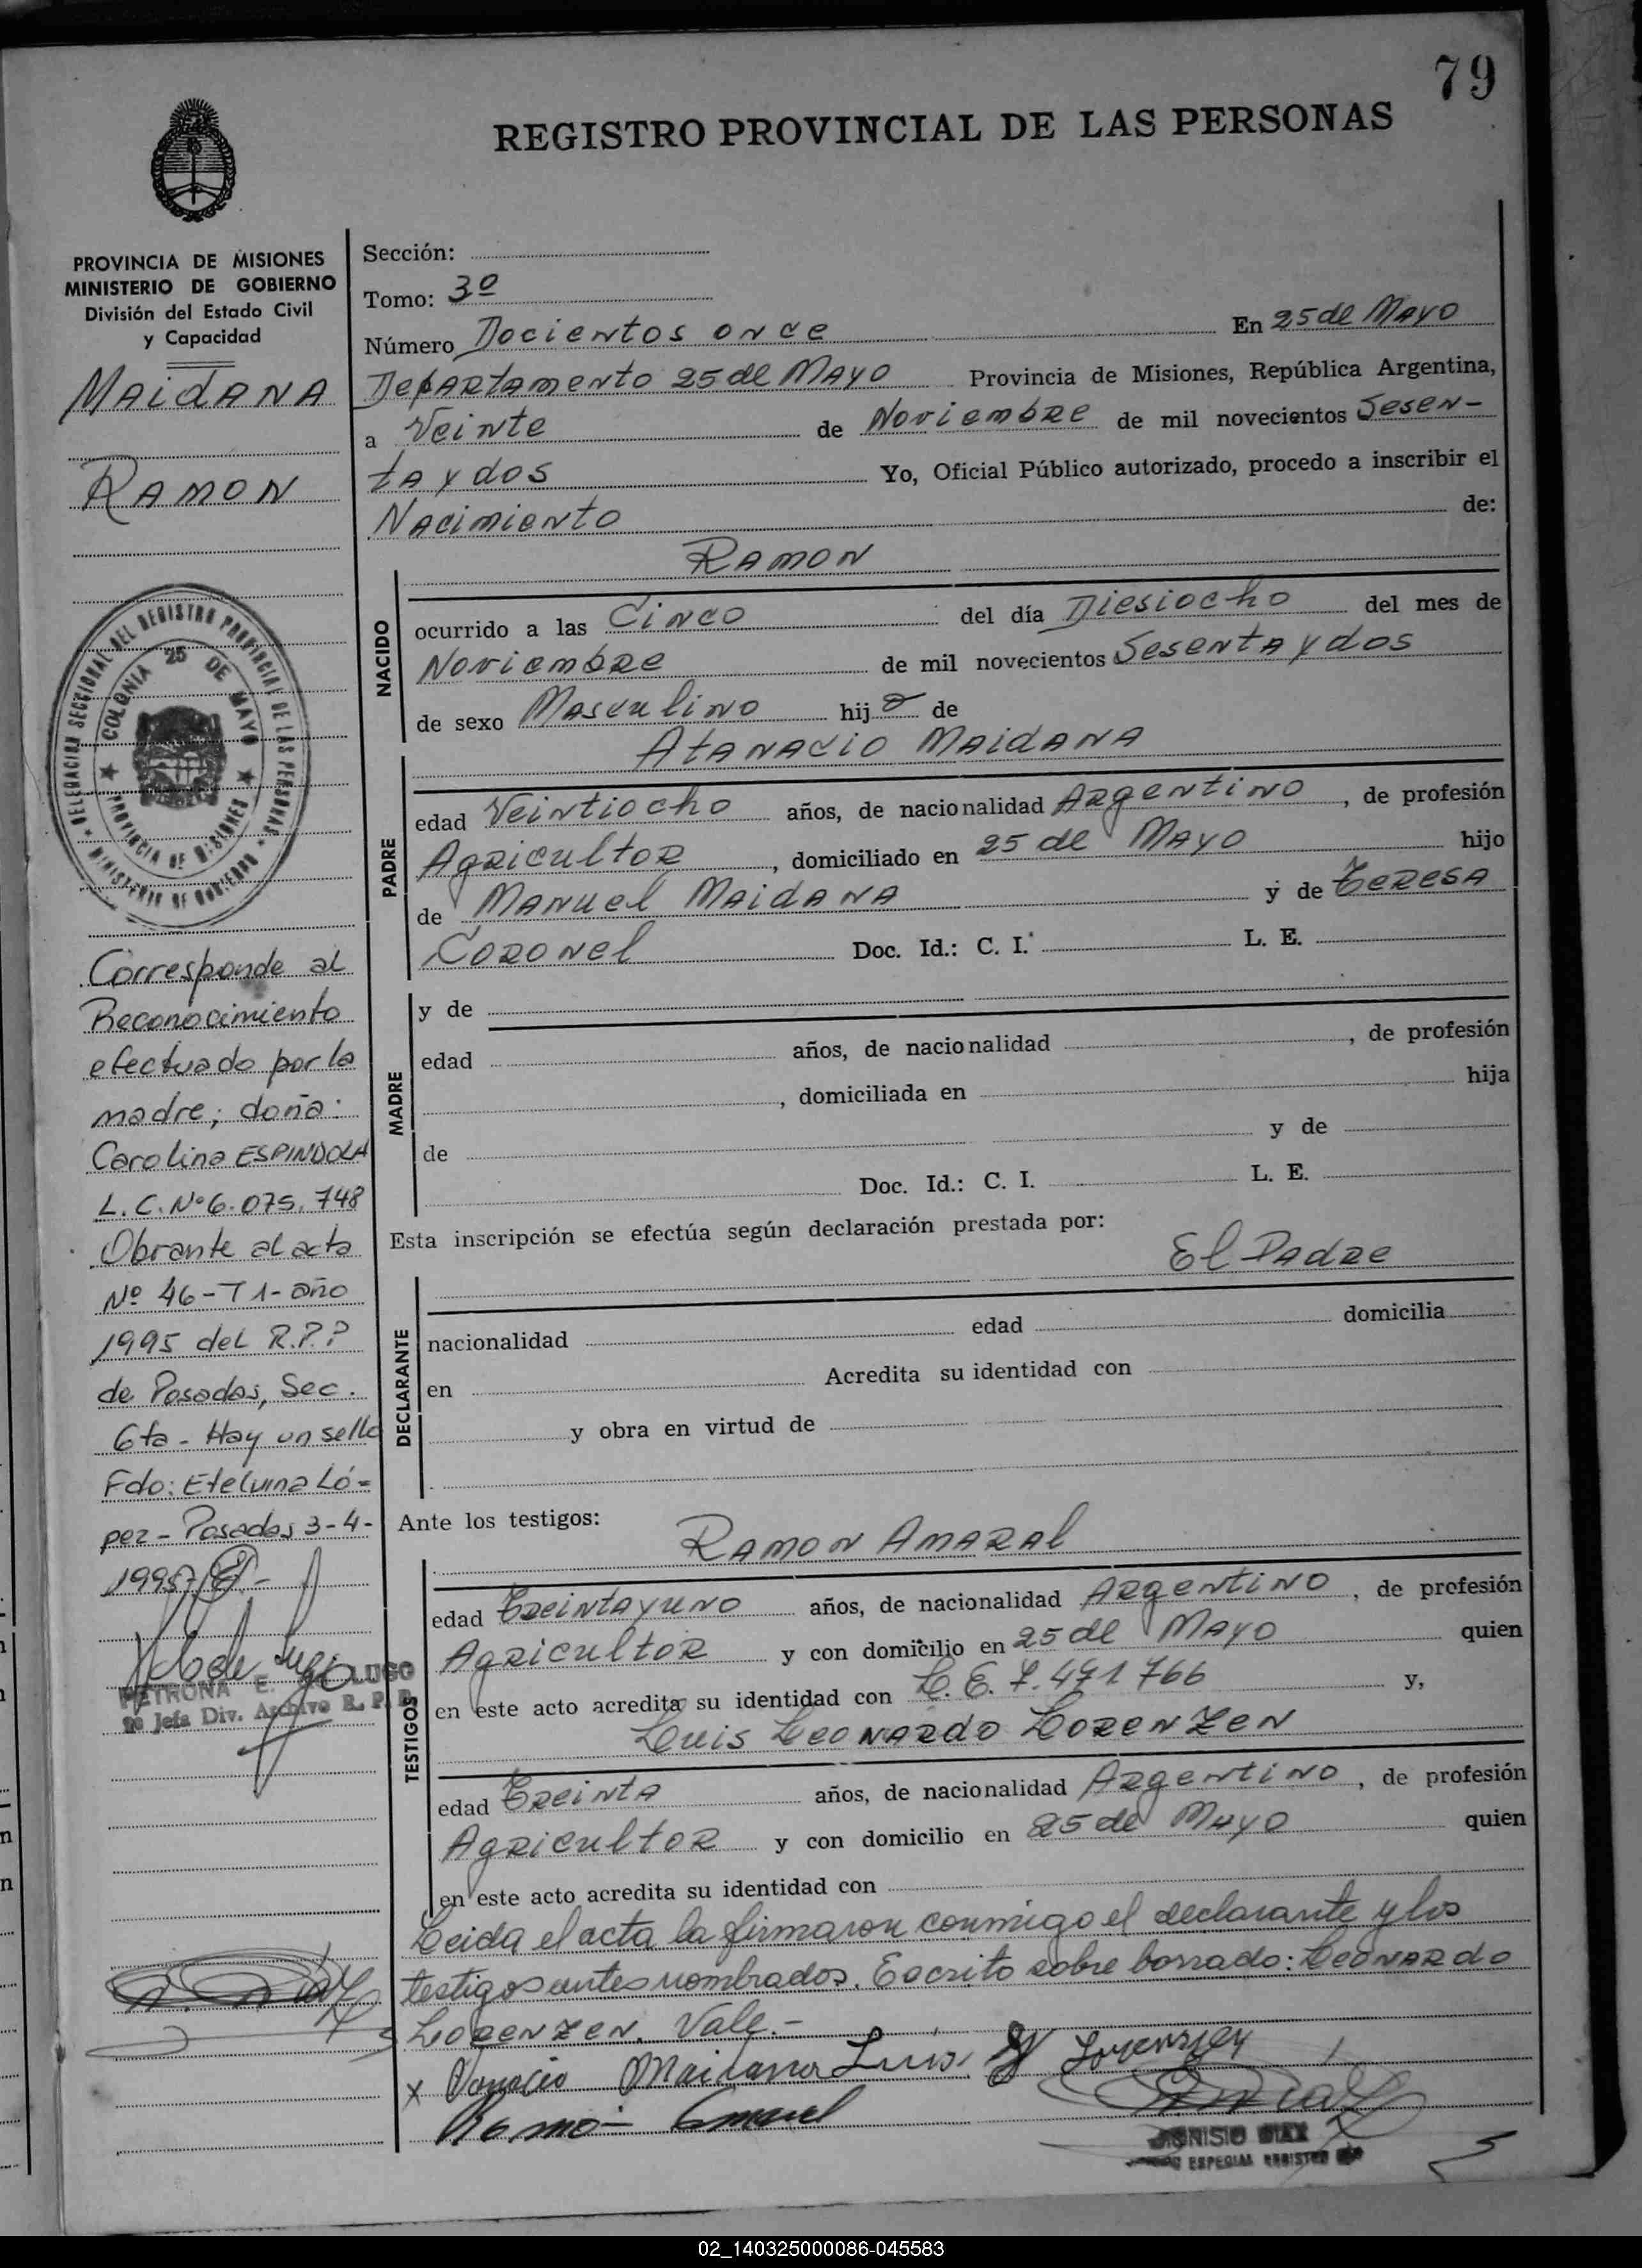 79
REGISTRO PROVINCIAL DE LAS PERSONAS
PROVINCIA DE MISIONES
MINISTERIO DE GOBIERNO
División del Estado Civil
y Capacidad
MAIDANA
RAMON
DELEGACION SECCIONAL DEL REGISTRO PROVINCIAL DE LAS PERSONAS
MINISTERIO DE GOBIERNO
COLONIA 25 DE MAYO
PROVINCIA DE MISIONES
Corresponde al
Reconocimiento
efectuado por la
madre; doña:
Carolina ESPINDOLA
L.C. Nº 6.075.748
Obrante al acta
Nº 46-T1-año
1995 del R.P.P
de Posadas, Sec.
6ta - Hay un sello
Fdo: Etelvina Ló-
pez - Posadas 3-4-
1995
PETRONA E. LUGO
Jefa Div. Archivo R. P. P.
Sección:
Tomo: 3º
Número Docientos once En 25 de Mayo
Departamento 25 de Mayo Provincia de Misiones, República Argentina,
a Veinte de Noviembre de mil novecientos Sesen-
ta y dos Yo, Oficial Público autorizado, procedo a inscribir el
Nacimiento de:
RAMON
NACIDO
ocurrido a las Cinco del día Diesiocho del mes de
Noviembre de mil novecientos Sesenta y dos
de sexo Masculino hij o de
Atanacio Maidana
PADRE
edad Veintiocho años, de nacionalidad Argentino, de profesión
Agricultor, domiciliado en 25 de Mayo hijo
de Manuel Maidana y de Teresa
Coronel Doc. Id.: C. I. L. E.
MADRE
y de
edad años, de nacionalidad , de profesión
, domiciliada en hija
de y de
Doc. Id.: C. I. L. E.
Esta inscripción se efectúa según declaración prestada por:
El Padre
DECLARANTE
nacionalidad edad domicilia
en Acredita su identidad con
y obra en virtud de
Ante los testigos:
Ramon Amaral
TESTIGOS
edad Treinta y uno años, de nacionalidad Argentino, de profesión
Agricultor y con domicilio en 25 de Mayo quien
en este acto acredita su identidad con L.E. 7.471766 y,
Luis Leonardo Lorenzen
edad Treinta años, de nacionalidad Argentino, de profesión
Agricultor y con domicilio en 25 de Mayo quien
en este acto acredita su identidad con
Leida el acta la firmaron conmigo el declarante y los
testigos antes nombrados. Escrito sobre borrado: Leonardo
Lorenzen. Vale.-
x Maidana Luis Lorenzen
DIONISIO DIAZ
ESPECIAL REGISTRO
02_140325000086-045583